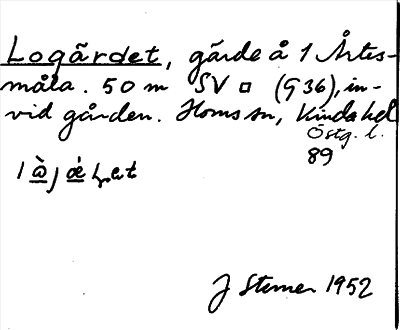 Logärdet, gärde å 1 Årtes-
måla. 50 m SV □ (G 36), in-
vid gården. Horns sn, Kinda hd
Östg. l.
89
J Stemer 1952